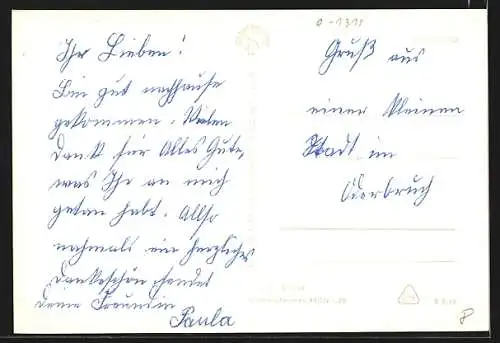 0-1315
Ihr Lieben!
Bin gut nachhause
gekommen. Vielen
Dank für Alles Gute,
was Ihr an mich
getan habt. Allso
nochmals ein herzliches
Dankeschön, sendet
deine Freundin
Paula
Gruß aus
einer kleinen
Stadt im
Oderbruch
8